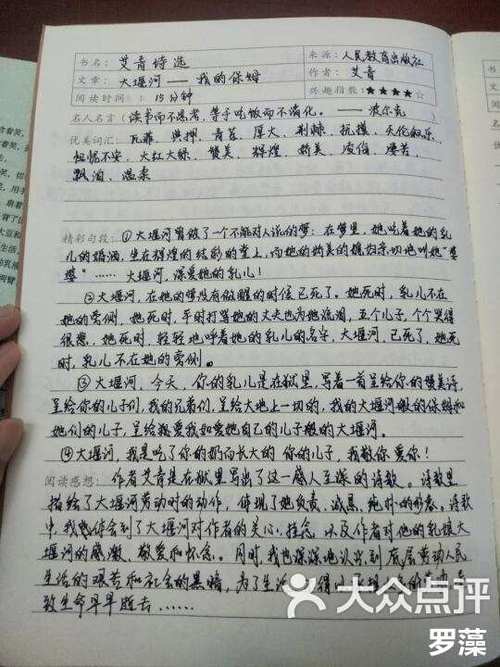 书名：艾青诗选
来源：人民教育出版社
文章：大堰河——我的保姆
作者：艾青
阅读时间：15分钟
兴趣指数：★★★★☆
名人名言（读书而不思考，等于吃饭而不消化。——波尔克
优美词汇：瓦菲、典押、青苔、厚大、荆棘、抚摸、天伦叙乐、
忸怩不安、大红大绿、赞美、辉煌、娇美、凌侮、凄苦、
飘泊、温柔
精彩句段：①大堰河曾做了一个不能对人说的梦：在梦里，她吃着她的乳
儿的婚酒，坐在辉煌的结彩的堂上，而她的娇美的媳妇亲切地叫她“婆
婆”……大堰河，深爱她的乳儿！
②大堰河，在她的梦没有做醒的时候已死了。她死时，乳儿不在
她的旁侧，她死时，平时打骂她的丈夫也为她流泪，五个儿子，个个哭得
很悲，她死时，轻轻地呼着她的乳儿的名字，大堰河，已死了，她死
时，乳儿不在她的旁侧。
③大堰河，今天，你的乳儿是在狱里，写着一首呈给你的赞美诗，
呈给你的儿子们，我的兄弟们，呈给大地上一切的，我的大堰河般的保姆和
她们的儿子，呈给爱我如爱她自己的儿子般的大堰河。
④大堰河，我是吃了你的奶而长大的你的儿子，我敬你爱你！
阅读感想：作者艾青是在狱里写出了这一感人至深的诗歌。诗歌里
描绘了大堰河劳动时的动作，体现了她负责、诚恳、纯朴的形象。诗歌
中，我也体会到了大堰河对作者的关心、挂念，以及作者对他的乳娘大
堰河的感激、敬爱和怀念。同时，我也深深地认识到底层劳动人民
生活的艰苦和社会的黑暗，为了生活
致生命早早逝去……
大众点评
罗藻